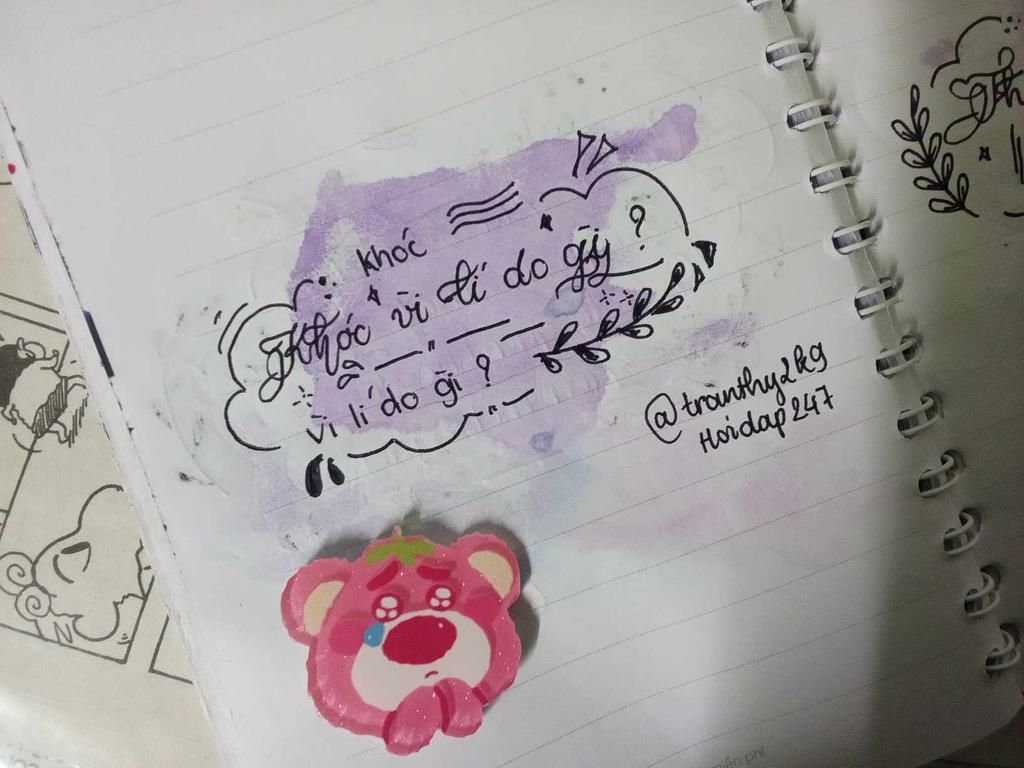 khóc
Khóc vì lí do gì ?
vì lí do gì ?
@tranthy2k9
Hoidap247
miễn phí